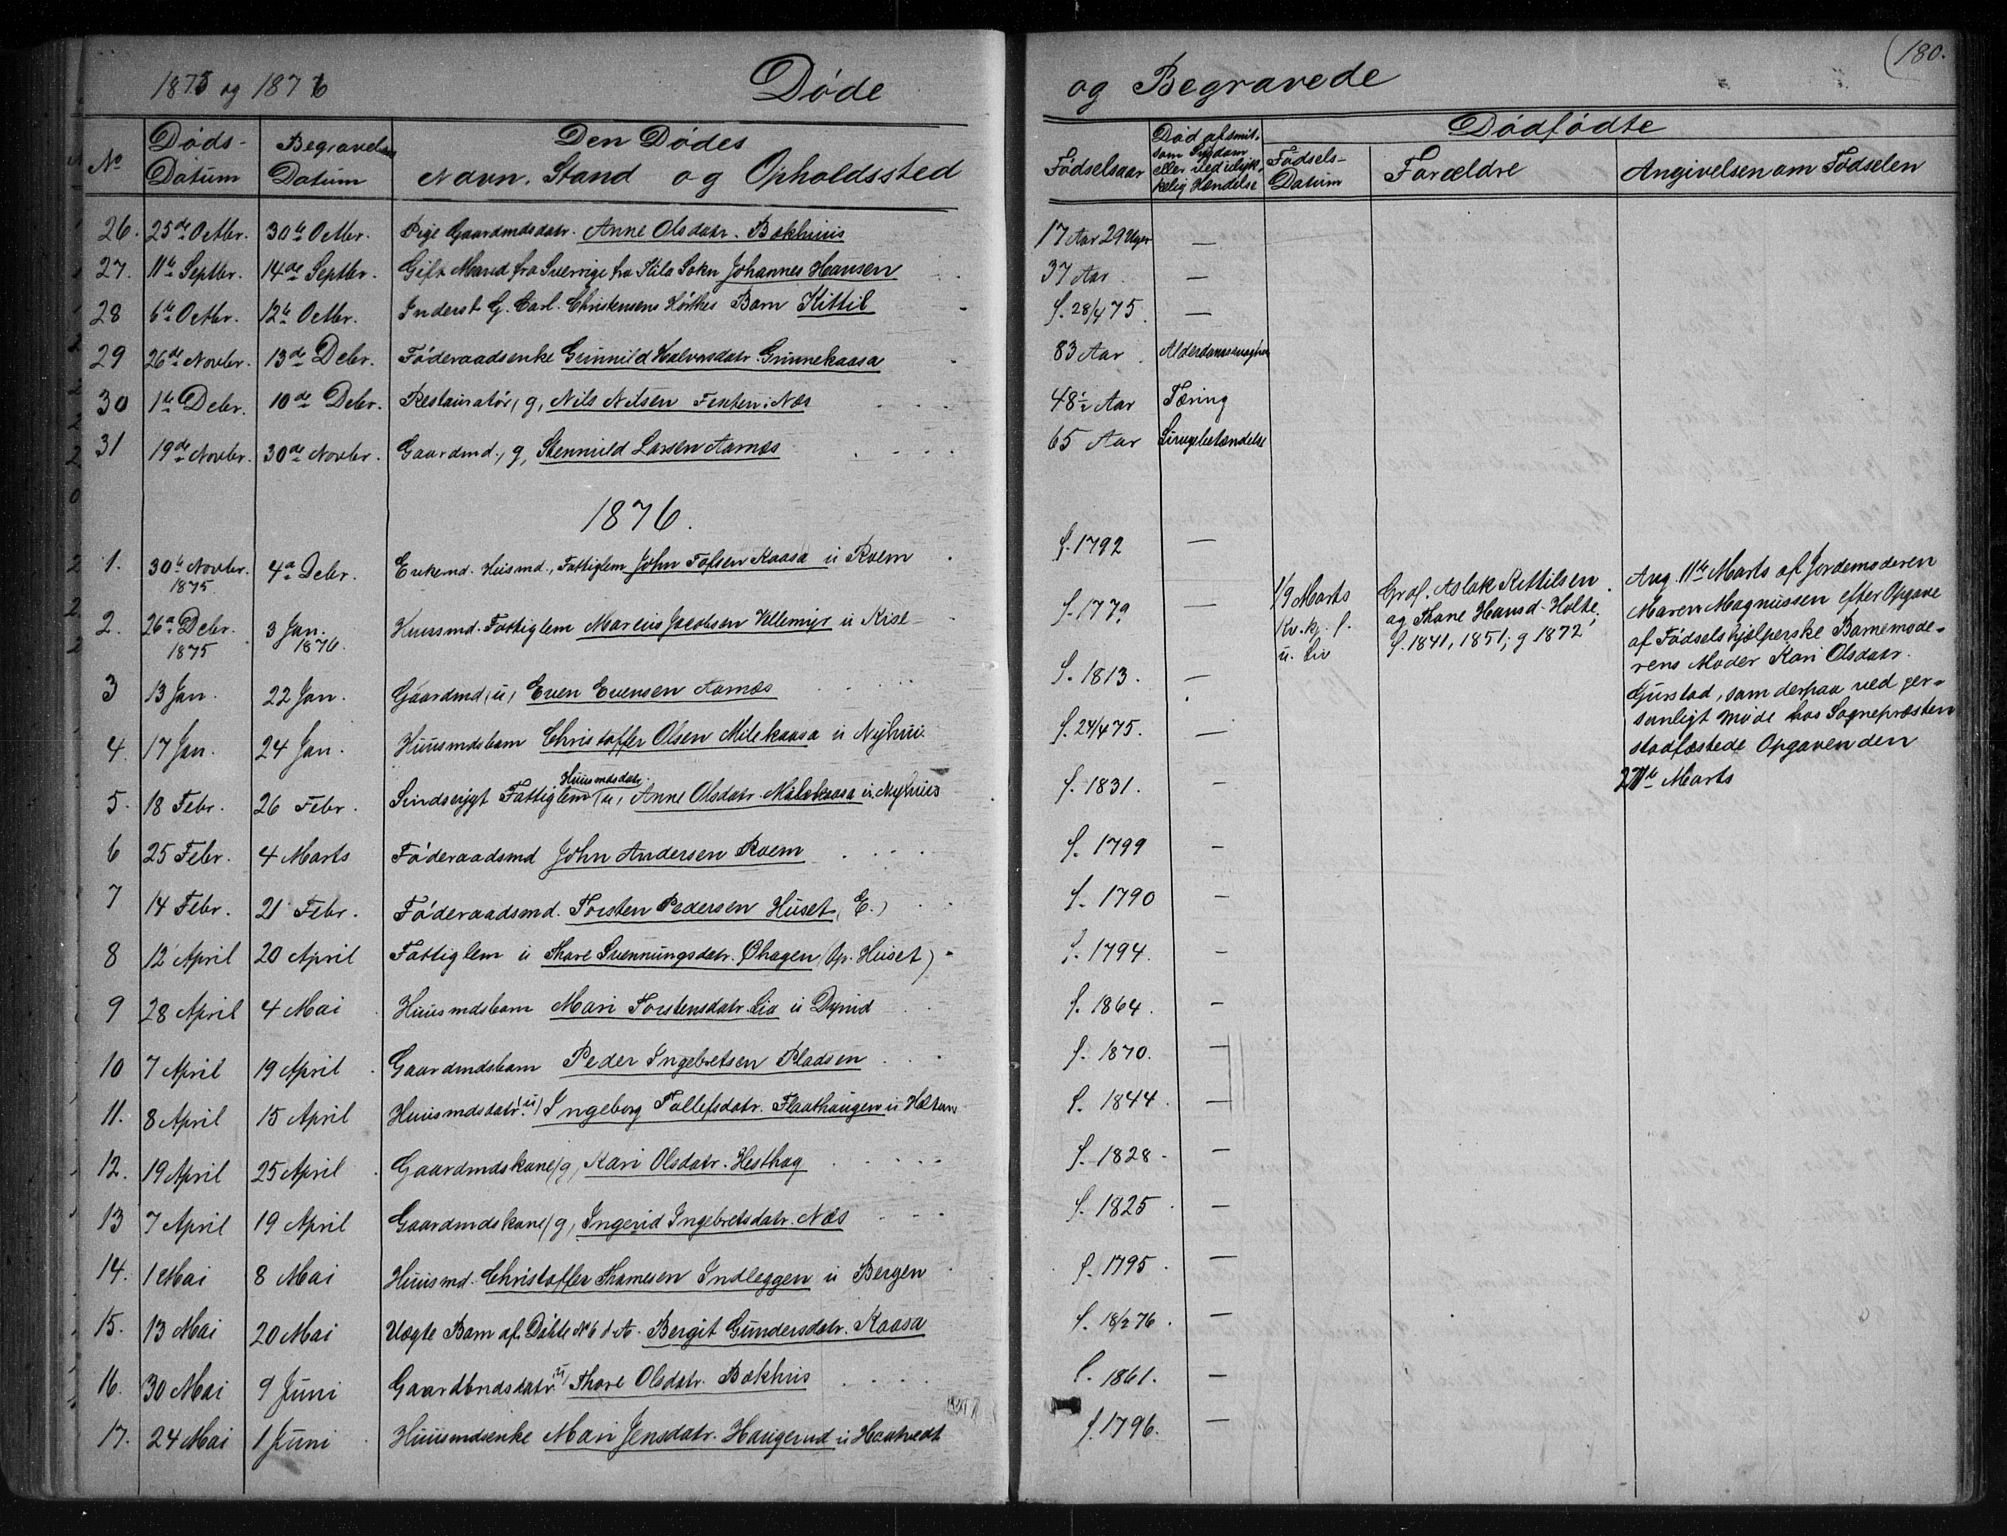 180.
1875 og 1876 Døde og Begravede
No Døds-Datum Begravelses Datum Den Dødes Navn, Stand og Opholdssted Fødselsaar Død af smitsom Sygdom eller ved ulykkelig Hændelse Dødfødte Fødsels-Datum Forældre Angivelsen om Fødselen
26. 25de Octbr. 30te Octbr. Pige Gaardmdsdatr. Anne Olsdatr. Bakhuus 17 Aar 29 Uger —
27. 11te Septbr. 14de Septbr. Gift Mand fra Sverrige fra Sokn Johannes Hansen 37 Aar —
28 6te Octbr. 12te Octbr. Inderst G. Carl Christensens Barn Kittil f. 28/4 75. —
29 26de Novbr. 13de Debr. Føderaadsenke Gunnild Halvorsdatr. Grinnekaasa 83 Aar
30 1te Debr. 10de Debr. Restauratør, g, Nils Nilsen Festen i Næs 48½ Aar Tæring
31 19de Novbr. 30de Novbr. Gaardmd., g, Stennild Larsen Aarnæs 65 Aar
1876.
1. 30te Novbr. 1875. 4de Debr. Enkemd. Huusmd., Fattiglem John Tofsen Kaasa u Roem f. 1792 —
2. 26de Debr. 1875 3 Jan. 1876. Huusmd. Fattiglem Marcus Jacobsen Vellemyr u Kise f. 1779 —
3 13 Jan. 22 Jan. Gaardmd, u, Even Evensen Aarnæs f. 1813. —
4. 17 Jan. 24 Jan. Huusmdsbarn Christoffer Olsen Milekaasa u Nyhuu. f. 24/4 75. —
5. 18 Febr. 26 Febr. Sindssygt Fattiglem Huusmdsdatr. (u, Anne Olsdatr. Milekaasa u. Nyhuus f. 1831. —
6 25 Febr. 4 Marts Føderaadsmd John Andersen Roem f. 1799 —
7 14 Febr. 21 Febr. Føderaadsmd. Torsten Pedersen Huset, E.) f. 1790 —
8 12 April 20 April Fattiglem u Thore Svennungsdatr. Øhagen (Op. Huset) f. 1794. —
9 28 April 4 Mai Huusmdsbarn Mari Torstensdatr. Lia u Dyrud f. 1864. —
10 7 April 19 April Gaardmdsbarn Peder Ingebretsen Pladsen f. 1870. —
11. 8 April 15 April Huusmdsdatr. u) Ingeborg Tollefsdatr. Flaathaugen u Hæturn f. 1844. —
12. 19 April 25 April Gaardmdskone, g, Kari Olsdatr. Hesthag f. 1828. —
13 7 April 19 April Gaardmdskone, g, Ingerid Ingebretsdatr. Næs f. 1825 —
14. 1 Mai 8 Mai Huusmd. Christoffer Thomesen Indleggen u Bergen f. 1795. —
15. 13 Mai 20 Mai Uægte Barn af Døbte No 6 d. A. Bergit Gundersdatr. Kaasa f. 18/2 76. —
16. 30 Mai 9 Juni Gaardbrdsdatr. u) Thore Olsdatr. Bakhus f. 1861. —
17. 24 Mai 1 Juni Huusmdsenke Mari Jensdatr. Haugerud u Haatvedt f. 1796. —
1/9 Marts
Kv. kj. f.
u. Liv
Grof. Aslak Kittilsen
og Thone Hansd. Holte
f. 1841, 1851; g 1872
Ang. 11te Marts af Jordemoderen
Maren Magnussen efter Opgave
af Fødselshjælperske Barnemode-
rens Moder Kari Olsdatr.
Gurstad, som derpaa ved per-
sonligt Møde hos Sognepræsten
stadfæstede Opgaven den
27de Marts